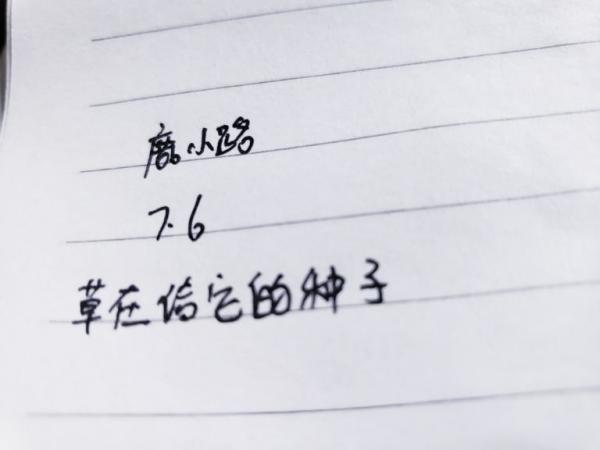 鹿小路
7.6
草在结它的种子